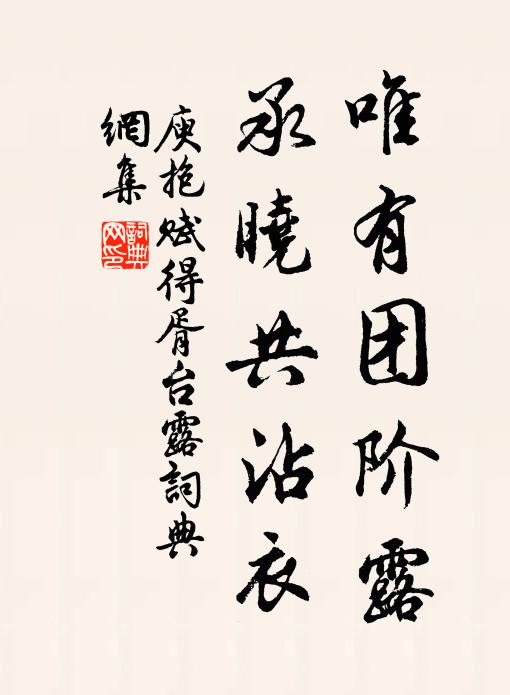 唯有团阶露
承晓共沾衣
庾抱赋得胥台露詞典
網集
詞典
网印